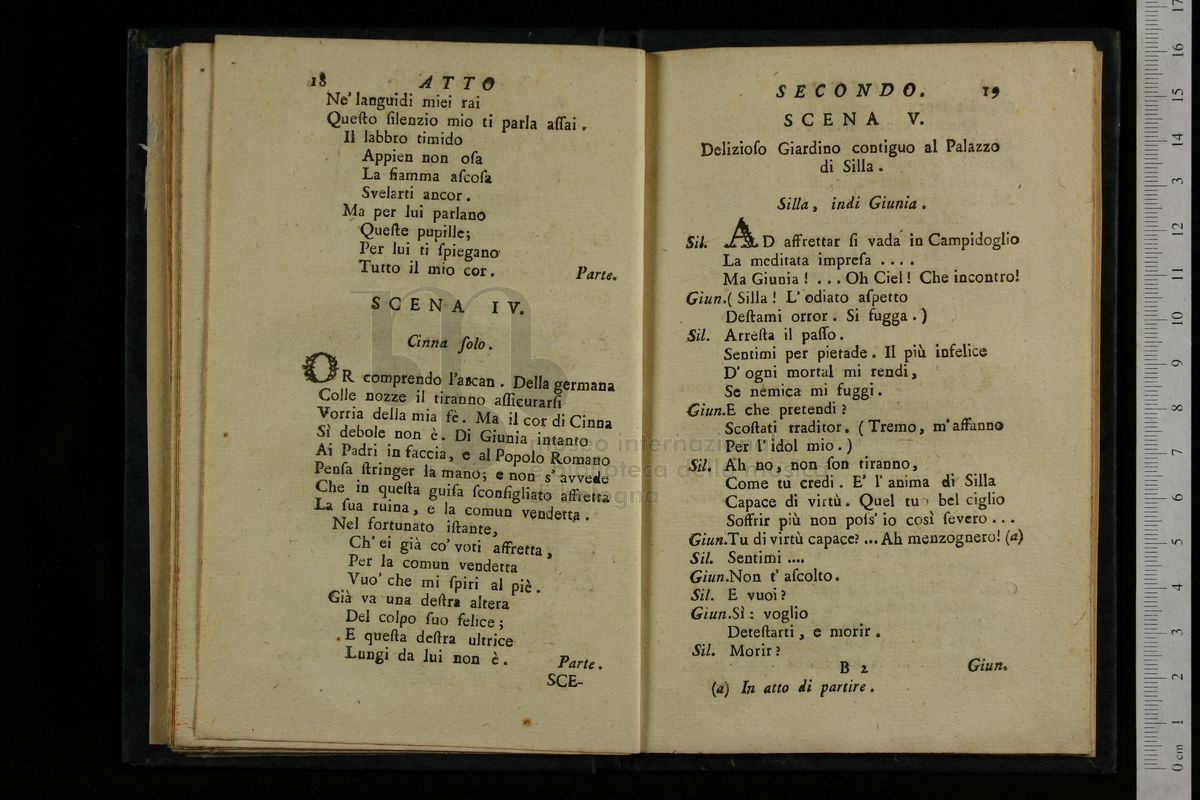 18 ATTO
Ne' languidi miei rai
Queſto ſilenzio mio ti parla aſſai.
Il labbro timido
Appien non oſa
La fiamma aſcoſa
Svelarti ancor.
Ma per lui parlano
Queſte pupille;
Per lui ti ſpiegano
Tutto il mio cor. Parte.
SCENA IV.
Cinna ſolo.
OR comprendo l'arcan. Della germana
Colle nozze il tiranno aſſicurarſi
Vorria della mia fè. Ma il cor di Cinna
Sì debole non è. Di Giunia intanto
Ai Padri in faccia, e al Popolo Romano
Penſa ſtringer la mano; e non s'avvede
Che in queſta guiſa ſconſigliato affretta
La ſua ruina, e la comun vendetta.
Nel fortunato iſtante,
Ch' ei già co' voti affretta,
Per la comun vendetta
Vuo' che mi ſpiri al piè.
Già va una deſtra altera
Del colpo ſuo felice;
E queſta deſtra ultrice
Lungi da lui non è. Parte.
SCE-
SECONDO. 19
SCENA V.
Delizioſo Giardino contiguo al Palazzo
di Silla.
Silla, indi Giunia.
Sil. AD affrettar ſi vada in Campidoglio
La meditata impreſa ....
Ma Giunia! ... Oh Ciel! Che incontro!
Giun.(Silla! L' odiato aſpetto
Deſtami orror. Si fugga.)
Sil. Arreſta il paſſo.
Sentimi per pietade. Il più infelice
D' ogni mortal mi rendi,
Se nemica mi fuggi.
Giun.E che pretendi?
Scoſtati traditor. (Tremo, m'affanno
Per l'idol mio.)
Sil. Ah no, non ſon tiranno,
Come tu credi. E' l'anima di Silla
Capace di virtù. Quel tuo bel ciglio
Soffrir più non poſs' io così ſevero...
Giun.Tu di virtù capace? ... Ah menzognero! (a)
Sil. Sentimi ....
Giun.Non t' aſcolto.
Sil. E vuoi?
Giun.Sì: voglio
Deteſtarti, e morir.
Sil. Morir?
B 2 Giun.
(a) In atto di partire.
museo internazionale
e biblioteca della musica
bologna
0 cm 1 2 3 4 5 6 7 8 9 10 11 12 13 14 15 16 17